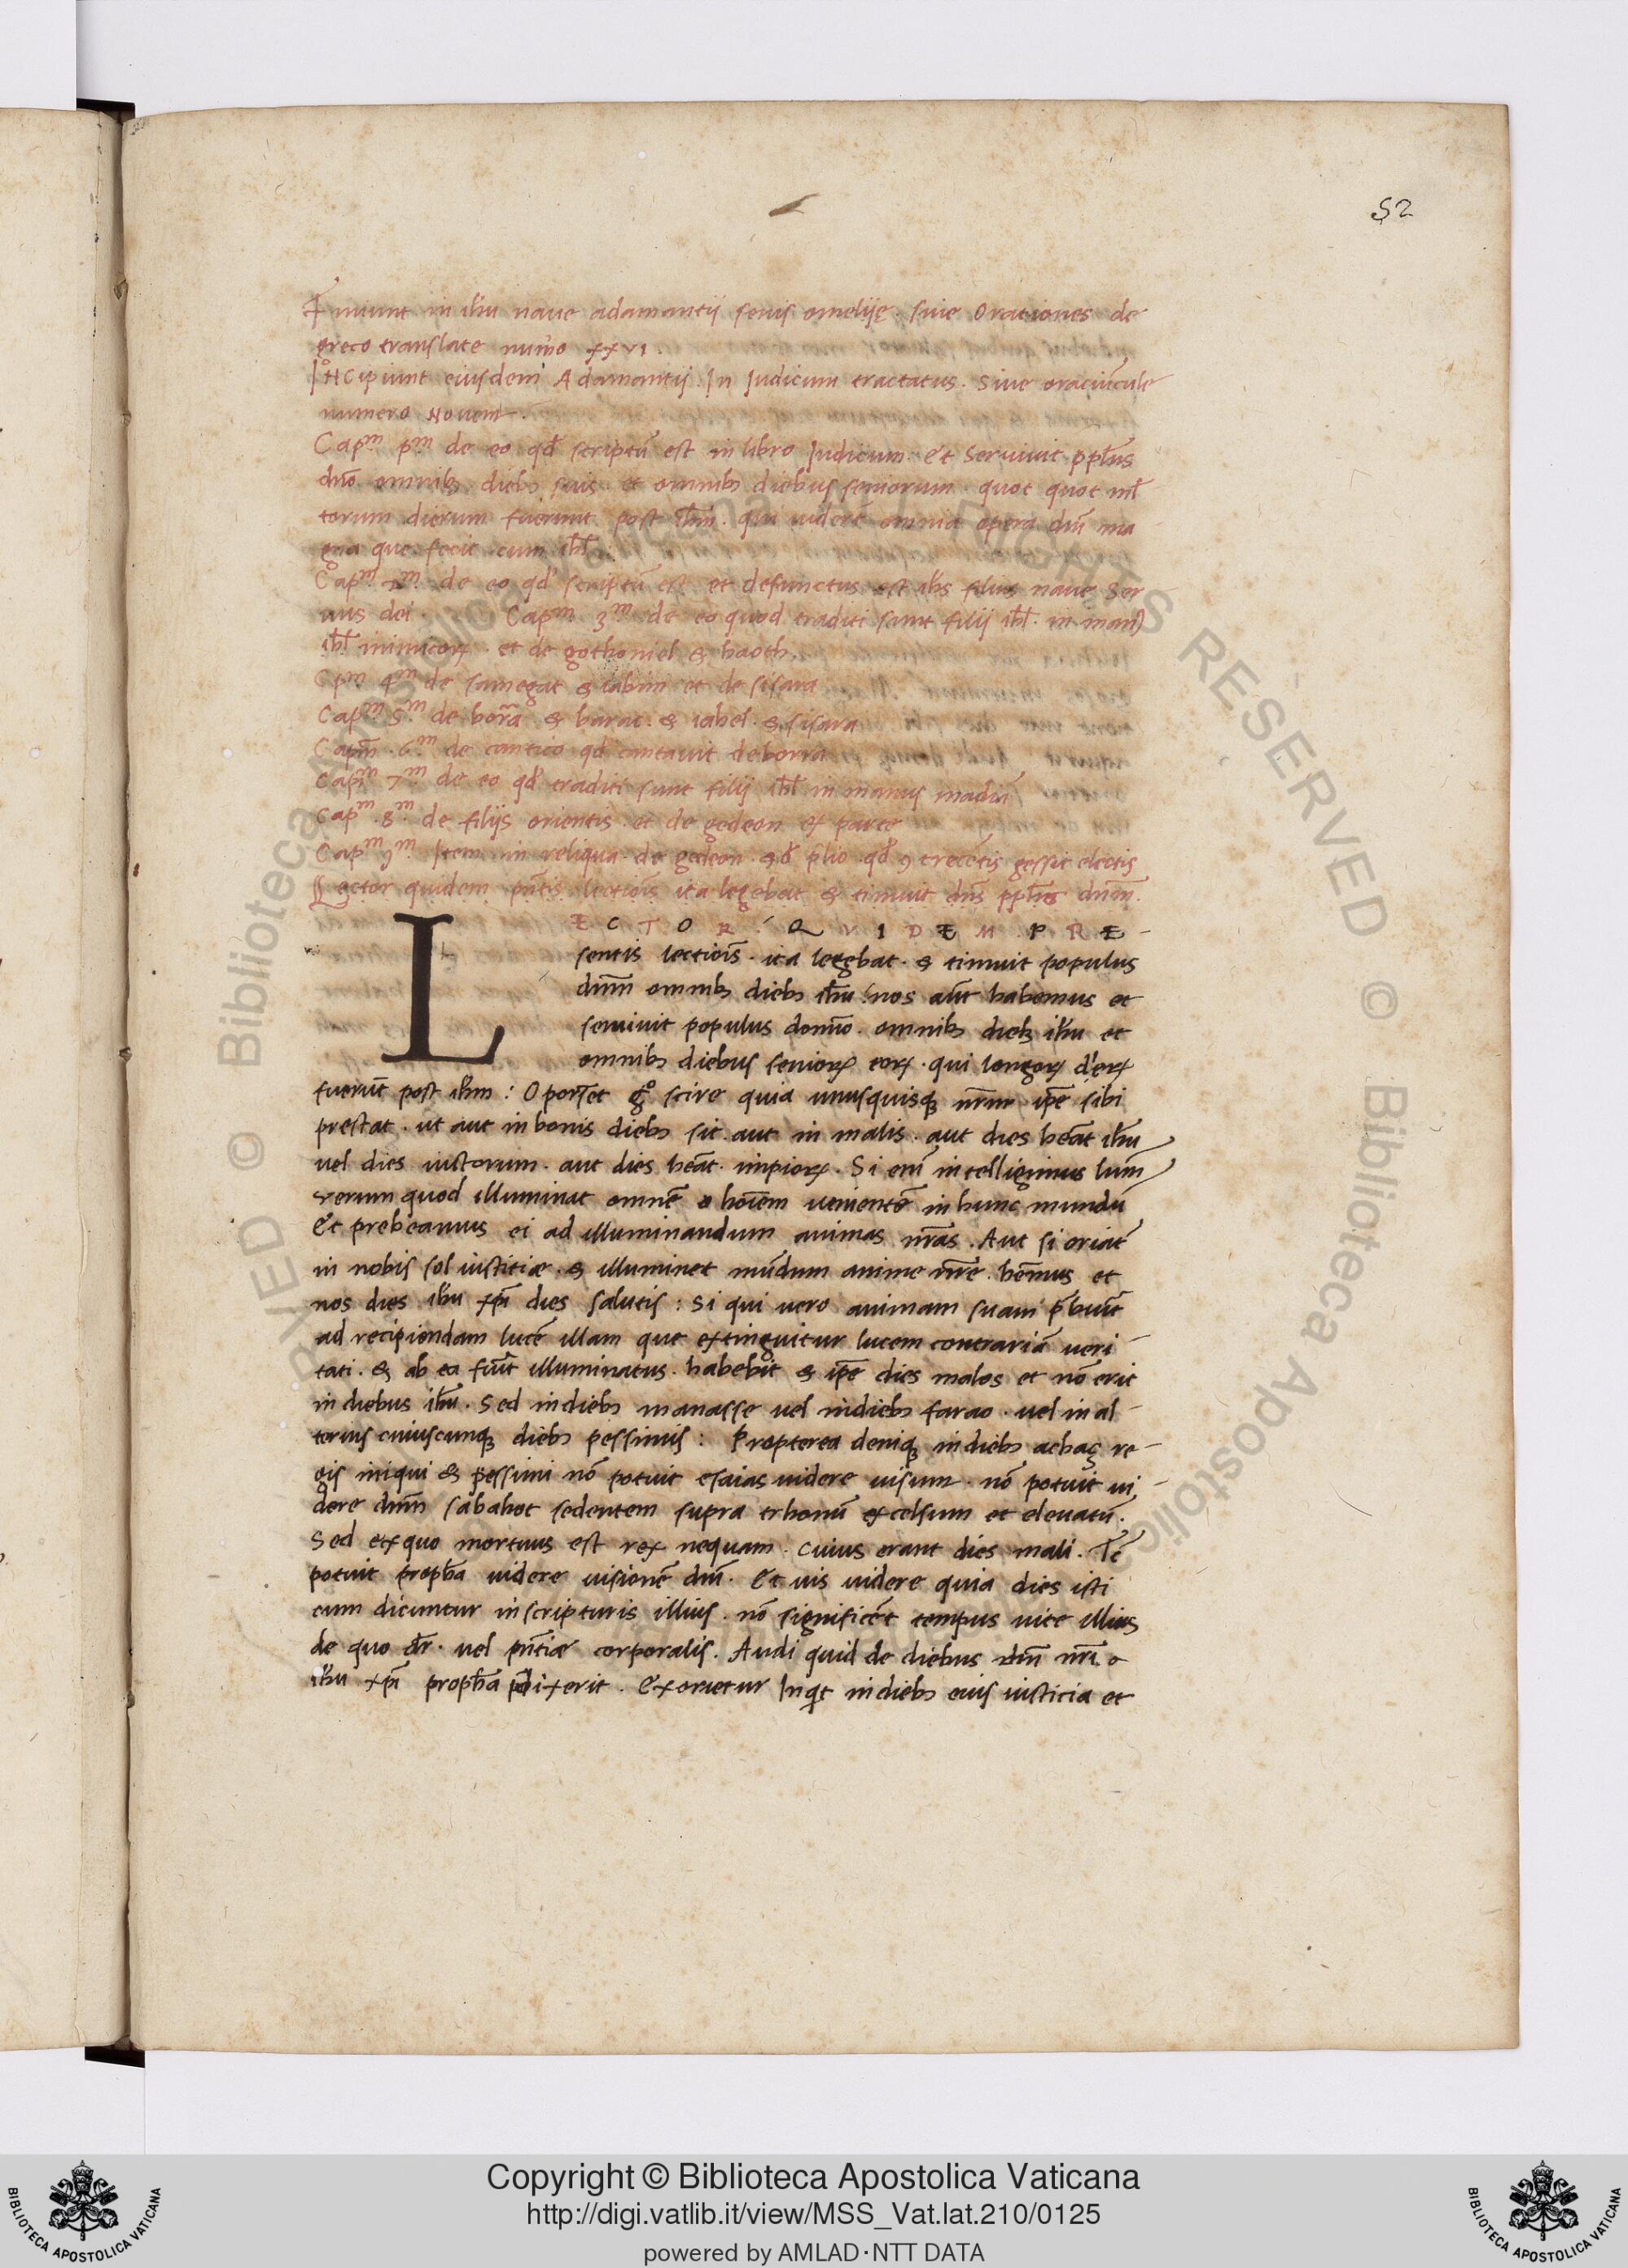 52
Finiunt in ihu naue adamantij senis omelije. siue Orationes de
greco translate numo xxvi.
INcipiunt eiusdem Adamantij. In Iudicum tractatus. Siue oraciuncule
numero Novem.
Capm pm de eo qd scriptu est in libro Iudicum. et Seruiuit pplus
dno omnib diebs suis. et omnibs diebus seniorum. quot quot ml
torum dierum fuerunt post ihm. qui uidere omnia opera dni ma
gna que fecit cum ihl:
Capm 2m de eo qd scriptu est et defunctus est ihs filius naue Ser
uus dei. Capm 3m de eo quod traditi sunt filij ihl. in man
ihl inimicorz. et de gothoniel & haoth.
Cpm 4m de samegat & iabim et de sisara
Capm 5m de bora & barac. & iabel. & sisara
Capm. 6m de cantico qd cantauit deborra
Capm 7m de eo qd traditi sunt filij ihl in manus madia
Capm. 8m. de filijs orientis. et de gedeon ex parte
Capm 9m. Item in reliqua de gedeon. &d plio qd 9 trecetis gessit electis
Lector quidem pntis lectiois ita legebat & timuit dns pplus dnm.
LECTOR. QVIDEM PRE-
sentis lectiois. ita leegbat. & timuit populus
dnm omnib diebs ihu: nos aut habemus et
seruiuit populus domno. omnib dieb ihu et
omnibs diebus seniorz eorz. qui longorz d'erz
fuerut post ihm: Oportet go scire quia unusquisq nrm ipe sibi
prestat. ut aut in bonis diebs sit. aut in malis. aut dies heat ihu
uel dies iustorum. aut dies heat. impiorz. Si eni intelligimus lum
verum quod illuminat omne o hoiem ueniente in hunc mundu
Et prebeamus ei ad illuminandum animas nras. Aut si oriat
in nobis sol iustitiæ. & illuminet mundum anime nre. hemus et
nos dies ihu xpi dies salutis: Si qui uero animam suam pbuit
ad recipiendam luce illam que extinguitur lucem contraria ueri-
tati. & ab ea fuit illuminatus. habebit & ipe dies malos et no erit
in diebus ihu. Sed in diebs manasse uel in diebs farao. uel in al-
terius cuiuscunq diebs pessimis: Propterea deniq in diebs achaç re-
gis iniqui & pessimi no potuit esaias uidere uisum. no potuit ui-
dere dnm sabahot sedentem supra trhonu excelsum et eleuatu.
Sed ex quo mortuus est rex nequam. cuius erant dies mali. Tc
potuit propha uidere uisione dni. Et uis uidere quia dies isti
cum dicuntur in scripturis illius. no significet tempus uite illius
de quo dr. uel pntiæ corporalis. Audi quid de diebus dni nri o
ihu xpi propha pdixerit. Exorietur Inqt in diebs eius iusticia et
Copyright © Biblioteca Apostolica Vaticana
http://digi.vatlib.it/view/MSS_Vat.lat.210/0125
powered by AMLAD·NTT DATA
BIBLIOTECA APOSTOLICA VATICANA
BIBLIOTECA APOSTOLICA VATICANA